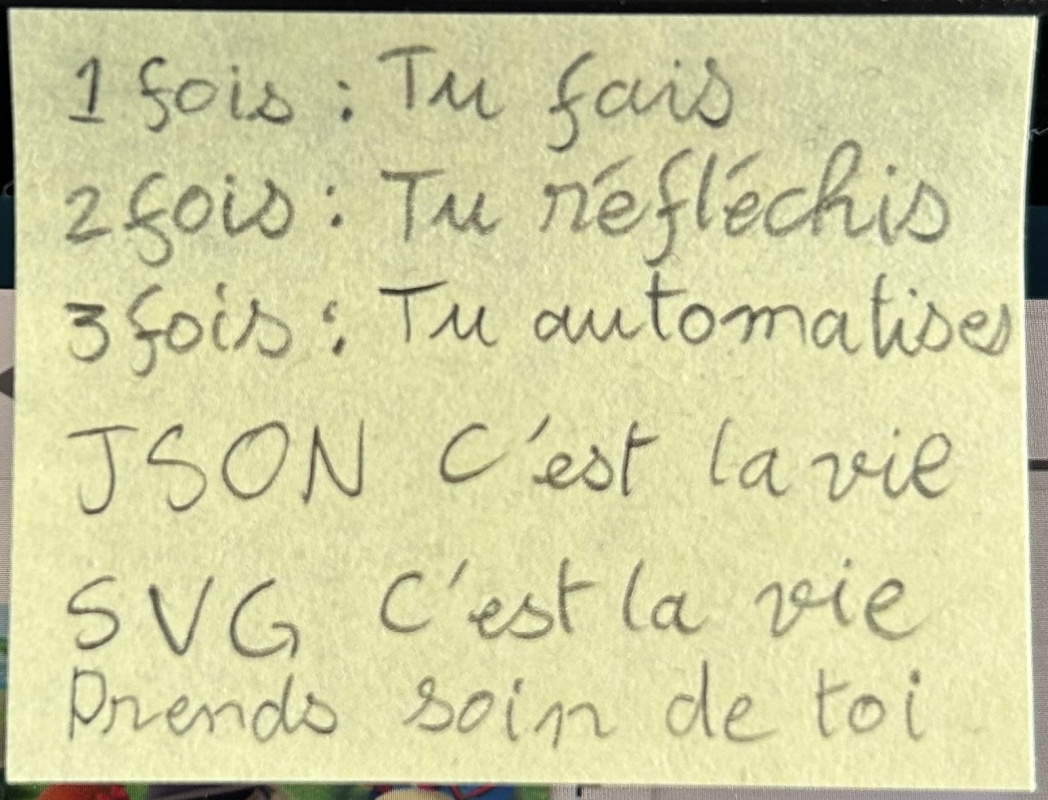 1 fois : Tu fais
2 fois : Tu réfléchis
3 fois : Tu automatises
JSON C'est la vie
SVG C'est la vie
Prends soin de toi